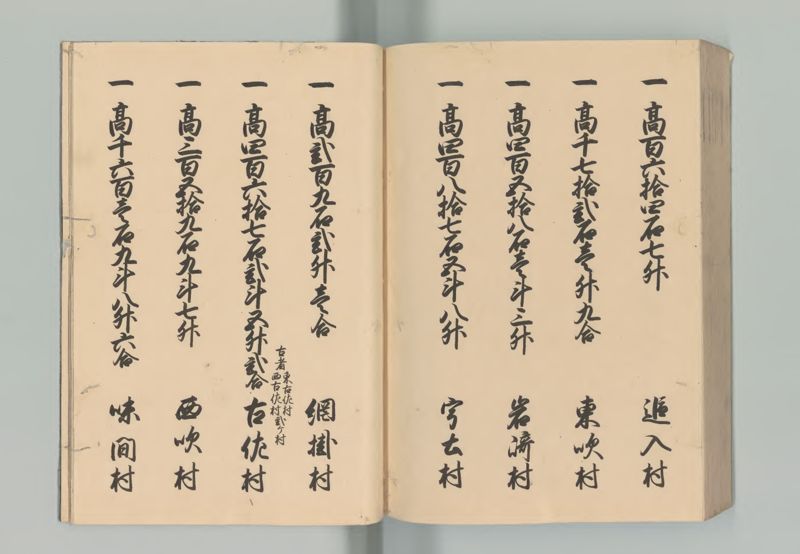 一高百六拾四石七升 追入村
一高千七拾弐石壱升九合 東吹村
一高四百五拾八石壱斗三升 岩﨑村
一高四百八拾七石五斗八升 宇土村
一高弐百九石弐升壱合 網掛村
古者 東古佐村
西古佐村弐ケ村
一高四百六拾七石弐斗五升弐合 古佐村
一高三百五拾九石九斗七升 西吹村
一高千六百壱石九斗八升六合 味間村